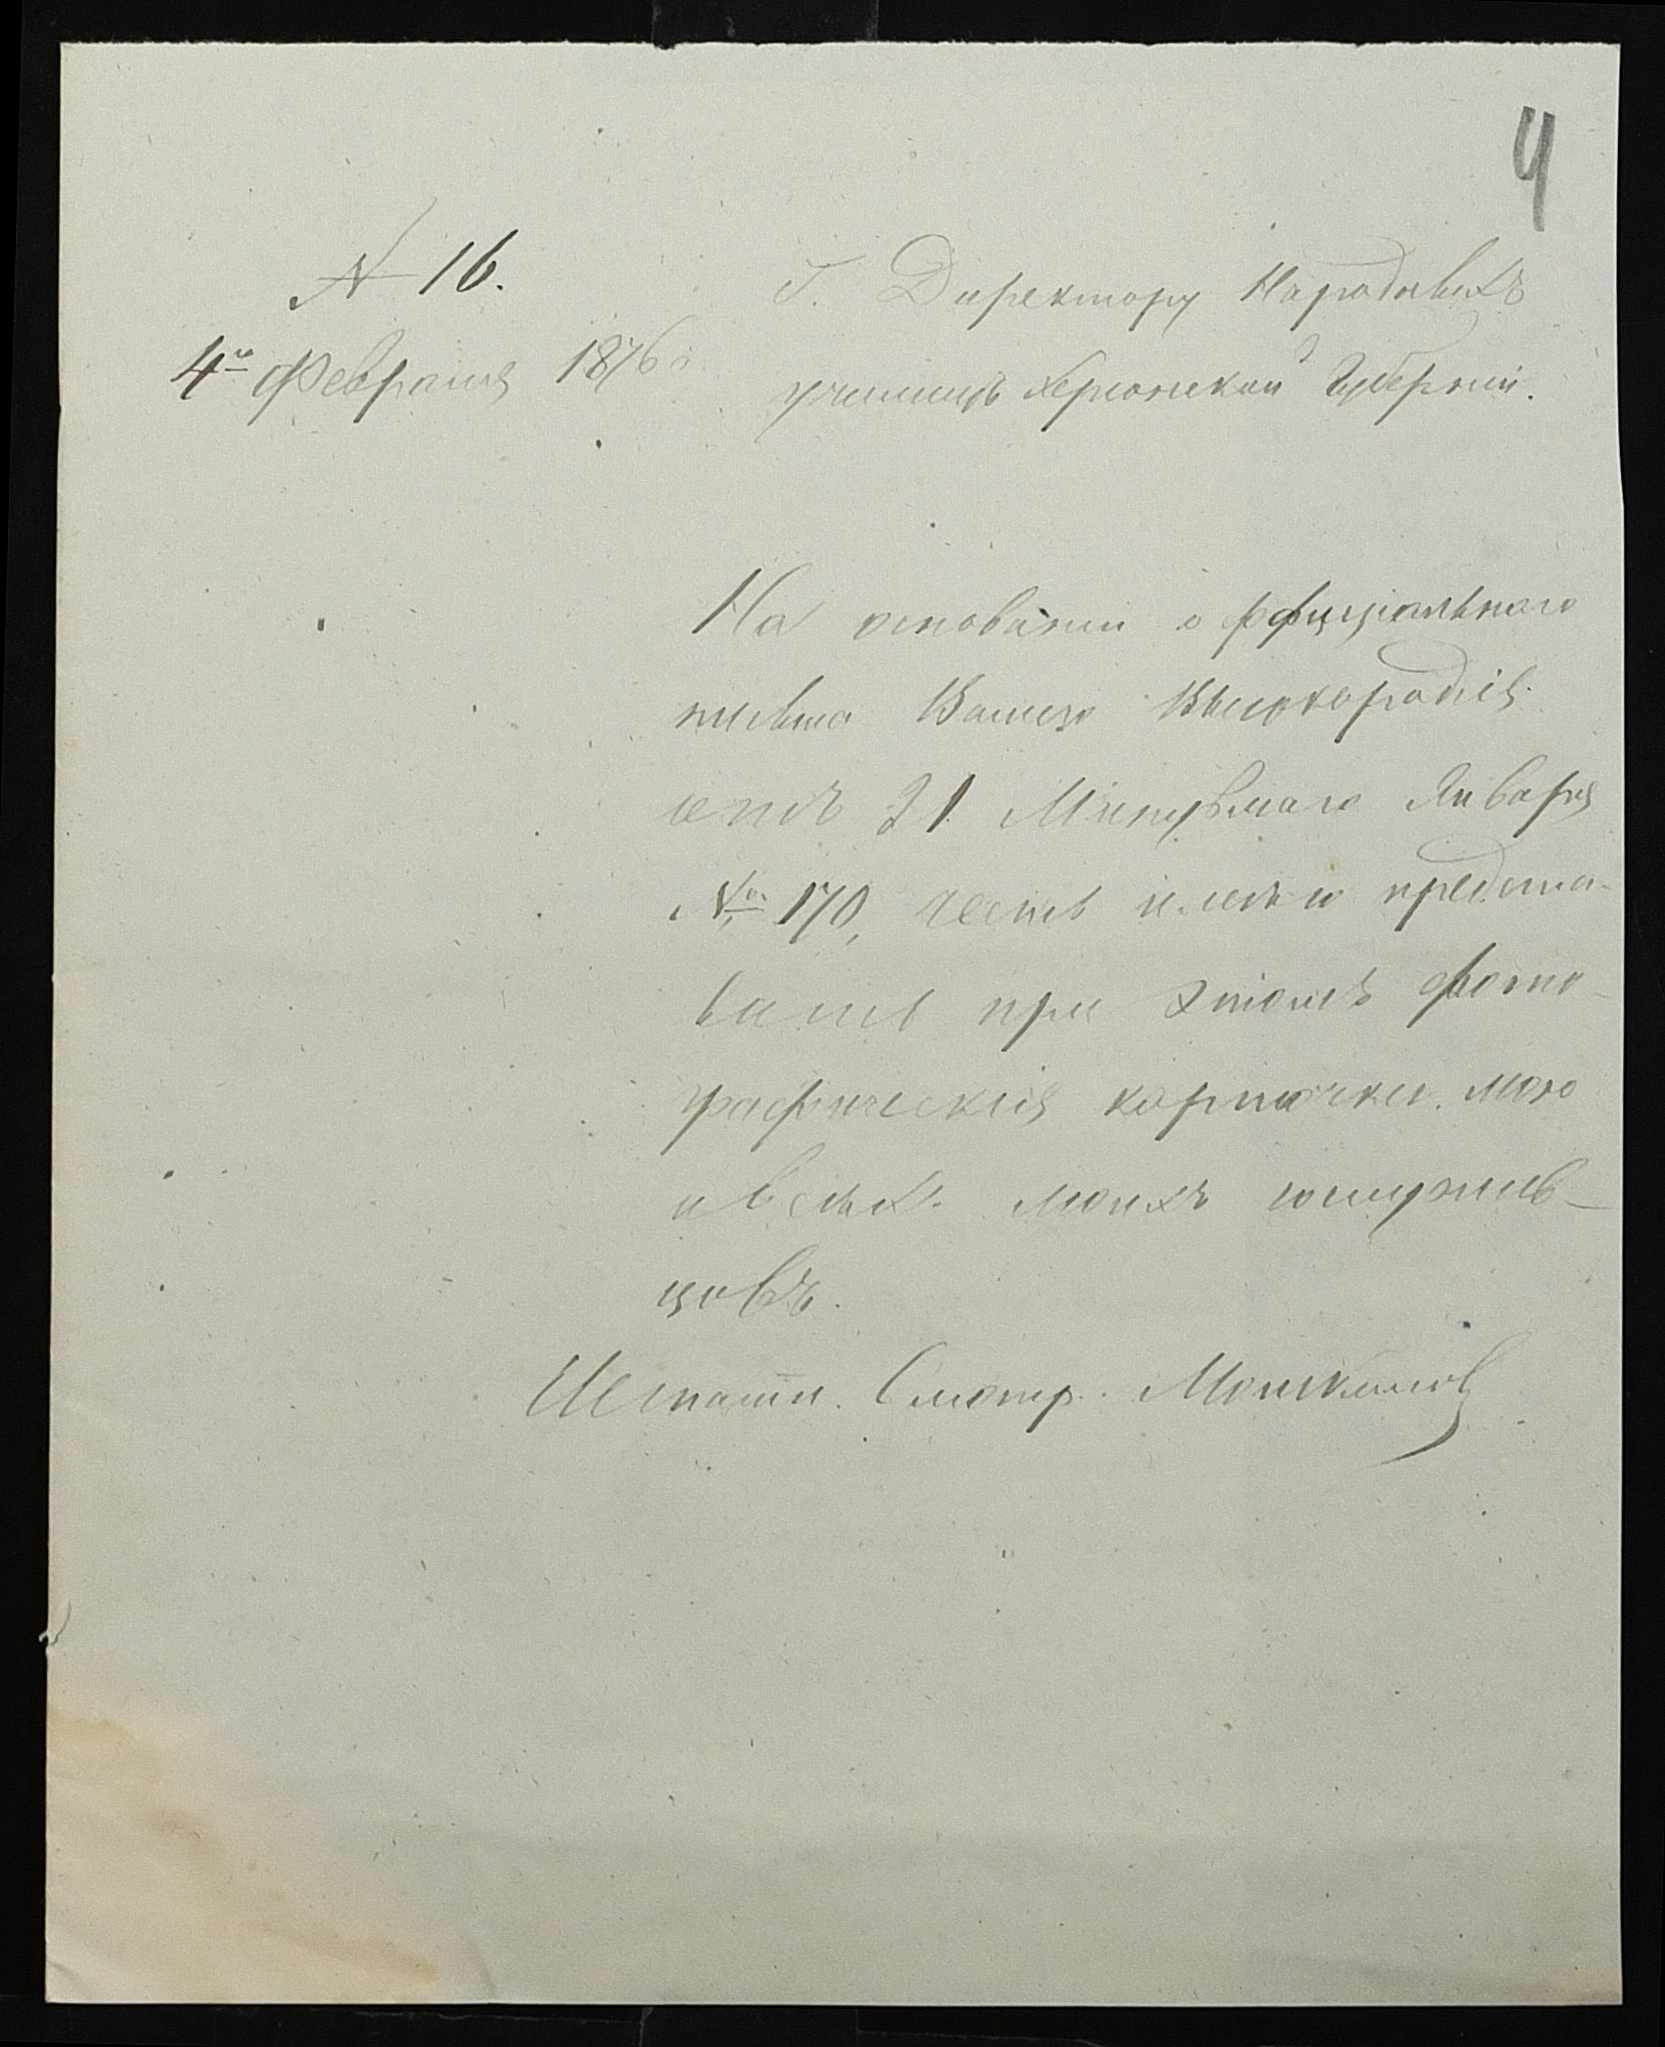 4
№ 16.
4го Февраля 1876 г.
Г. Директору Народныхъ
училищъ Херсонской Губерніи.
На основаніи оффиціальнаго
письма Вашего Высокородія
отъ 21 Минувшаго Января
№ 170, честь имѣю предста-
вить при этомъ фото-
графическія карточки мою
и всѣхъ моихъ сослужив-
цовъ.
Штатн. Смотр.